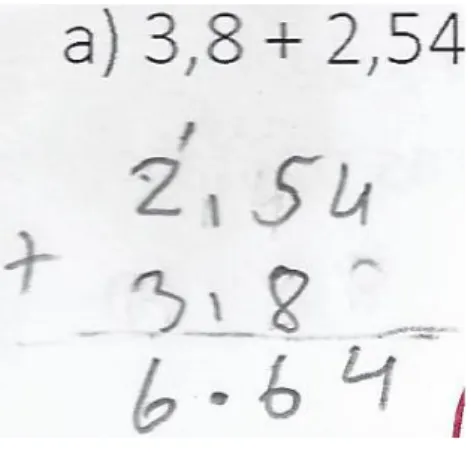 a) 3,8 + 2,54
1
2,54
+ 3,8
6.64